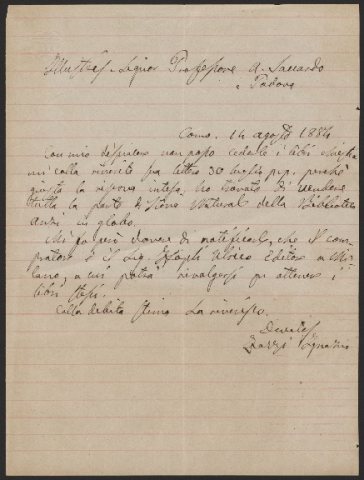 Illustris. Signor Professore A. Saccardo
Padova
Como, 14 agosto 1884
Con mio dispiacere non posso cederle i libri chiesti
mi colla riverita sua lettera 30 luglio pp. perchè
giusta la intesa, ho trovato di vendere
tutta la parte di Storia Naturale della Biblioteca
in globo.
Mi fo però dovere di notificarle, che il com-
pratore è il Sig. Hoepli Ulrico Editore a Mi-
lano, a cui potrà rivolgersi per ottenere i
libri stessi.
Colla debita stima La riverisco.
Devotes.
Ignazio